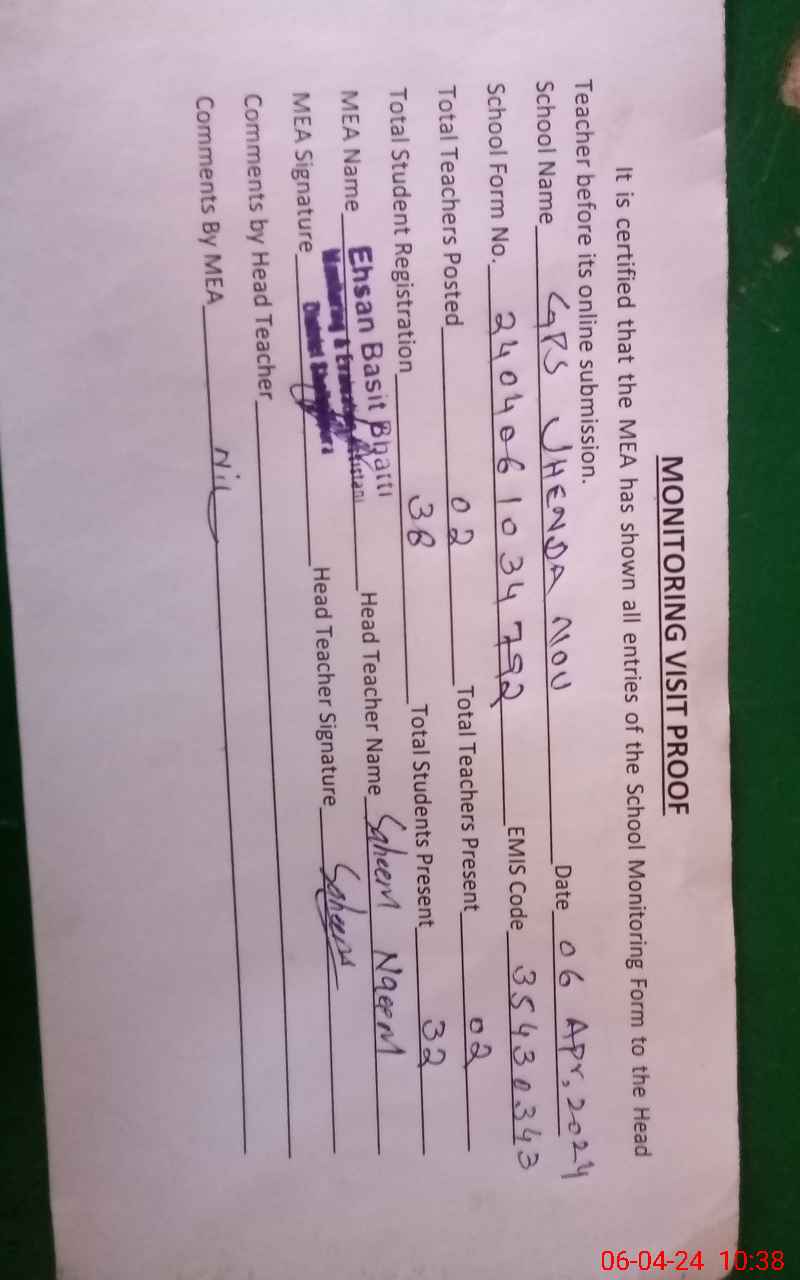 MONITORING VISIT PROOF
It is certified that the MEA has shown all entries of the School Monitoring Form to the Head
Teacher before its online submission.
School Name GPS JHENDA NOU Date 06 Apr, 2024
School Form No. 2404061034792 EMIS Code 35430343
Total Teachers Posted 02 Total Teachers Present 02
Total Student Registration 36 Total Students Present 32
MEA Name Ehsan Basit Bhatti Head Teacher Name Saheem Naeem
Monitoring &
District
MEA Signature Head Teacher Signature Saheem
Comments by Head Teacher
Comments By MEA Nil
06-04-24 10:38